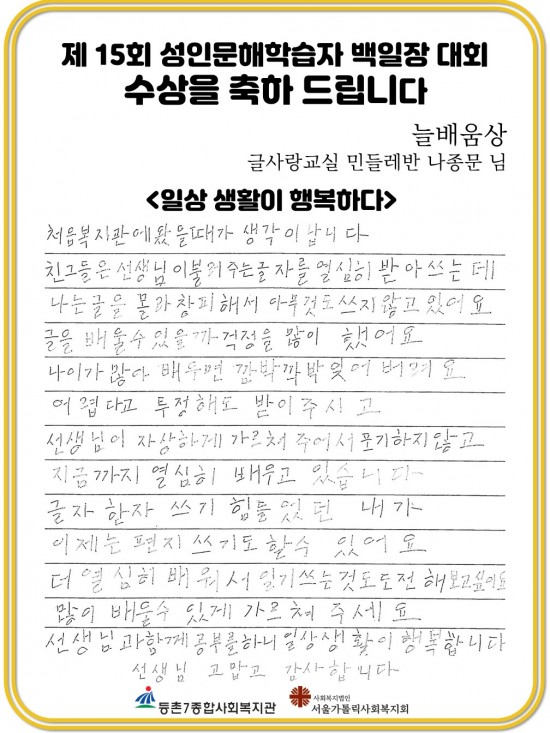 제 15회 성인문해학습자 백일장 대회
수상을 축하 드립니다
늘배움상
글사랑교실 민들레반 나종문 님
<일상 생활이 행복하다>
처음복지관에 왔을때가 생각이납니다
친구들은 선생님이불러주는글자를 열심히 받아쓰는데
나는글을 몰라창피해서 아무것도쓰지않고있어요
글을 배울수있을까걱정을 많이 했어요
나이가많아 배우면 깜박깜박잊어버려요
어렵다고 투정해도 받아주시고
선생님이 자상하게 가르쳐주어서포기하지않고
지금까지 열심히 배우고 있습니다
글자 한자 쓰기 힘들었던 내가
이제는 편지쓰기도할수 있어요
더열심히배워서일기쓰는것도도전해보고싶어요
많이 배울수 있게 가르쳐 주세요
선생님과함께공부를하니일상생활이행복합니다
선생님 고맙고 감사합니다
등촌7종합사회복지관
사회복지법인
서울가톨릭사회복지회